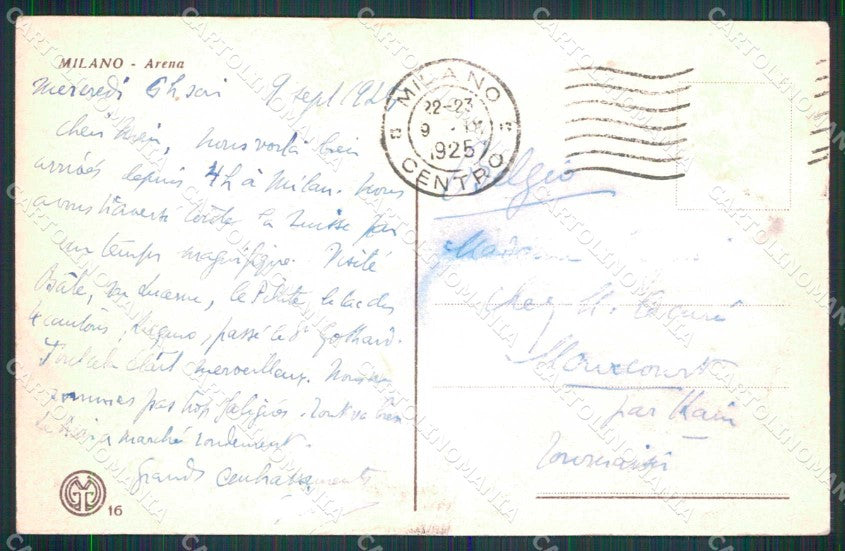 MILANO - Arena
Mercredi 6h soir 9 sept 192
MILANO
22-23
9 IX
1925
CENTRO
nous voilà bien
arrivés depuis 4h à Milan. Nous
avons traversé toute la Suisse par
un temps magnifique. Visité
Bâle, vu Lucerne, le Pilate, le lac des
4 cantons, Lugano, passé le St Gothard.
Tout cela était merveilleux. Nous ne
sommes pas trop fatigués. Tout va bien
a marché rondement.
Grands
Belgio
Madame
Chez M. le Curé
Mourcourt
par Kain
Tournaisis
16
CARTOLINOMANIA